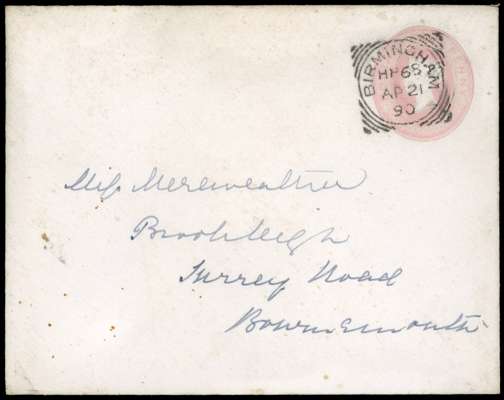 BIRMINGHAM
AP 21
90
Miss Mereweather
Brookleigh
Surrey Road
Bournemouth